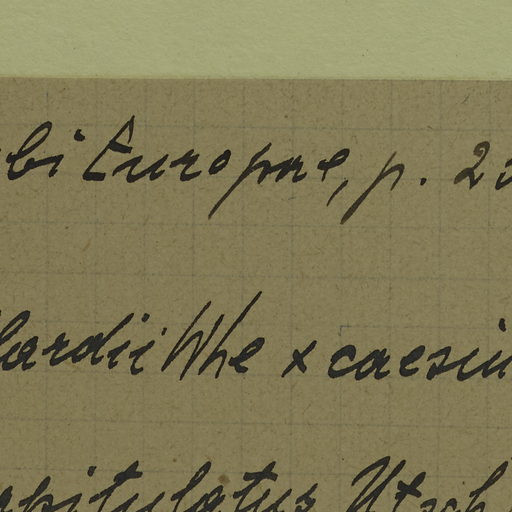 bi Europae, p. 2
lardii Whe x caesiu
apitulatus Utsch